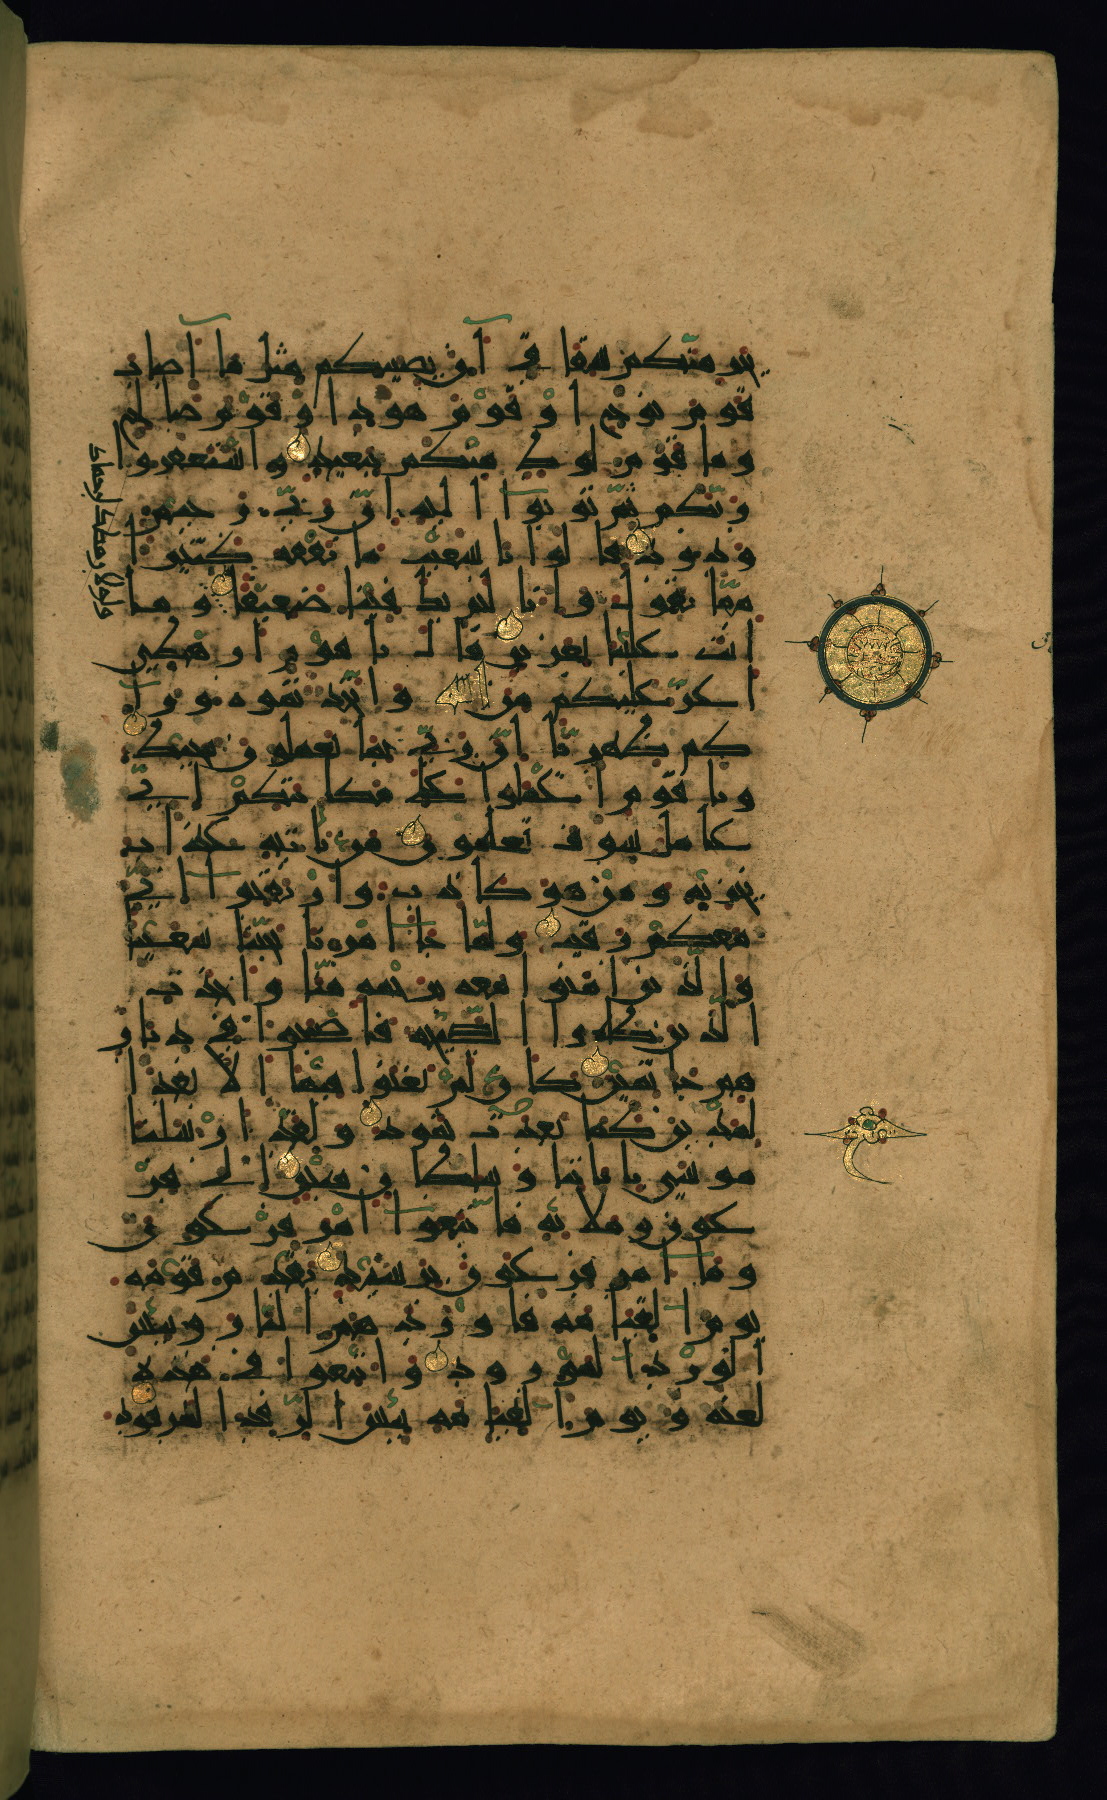 يجرمنكم شقاقي ان يصيبكم مثل ما اصاب
قوم نوح او قوم هود او قوم صالح
وما قوم لوط منكم ببعيد واستغفروا
ربكم ثم توبوا اليه ان ربي رحيم
ودود قالوا يا شعيب ما نفقه كثيرا
مما تقول وانا لنريك فينا ضعيفا وما
ولولا رهطك لرجمناك
انت علينا بعزيز قال يا قوم ارهطي
اعز عليكم من الله واتخذتموه ورا
كم ظهريا ان ربي بما تعملون محيط
ويا قوم اعملوا على مكانتكم اني
عامل سوف تعلمون من ياتيه عذاب
يخزيه ومن هو كاذب وارتقبوا اني
معكم رقيب ولما جا امرنا نجينا شعيبا
والذين امنوا معه برحمة منا واخذت
الذين ظلموا الصيحة فاصبحوا في ديار
هم جاثمين كان لم يغنوا فيها الا بعدا
لمدين كما بعدت ثمود ولقد ارسلنا
موسى باياتنا وسلطان مبين الى فر
عون وملائه فاتبعوا امر فرعون
وما امر فرعون برشيد يقدم قومه
يوم القيمة فاوردهم النار وبئس
الورد المورود واتبعوا في هذه
لعنة ويوم القيمة بئس الرفد المرفود